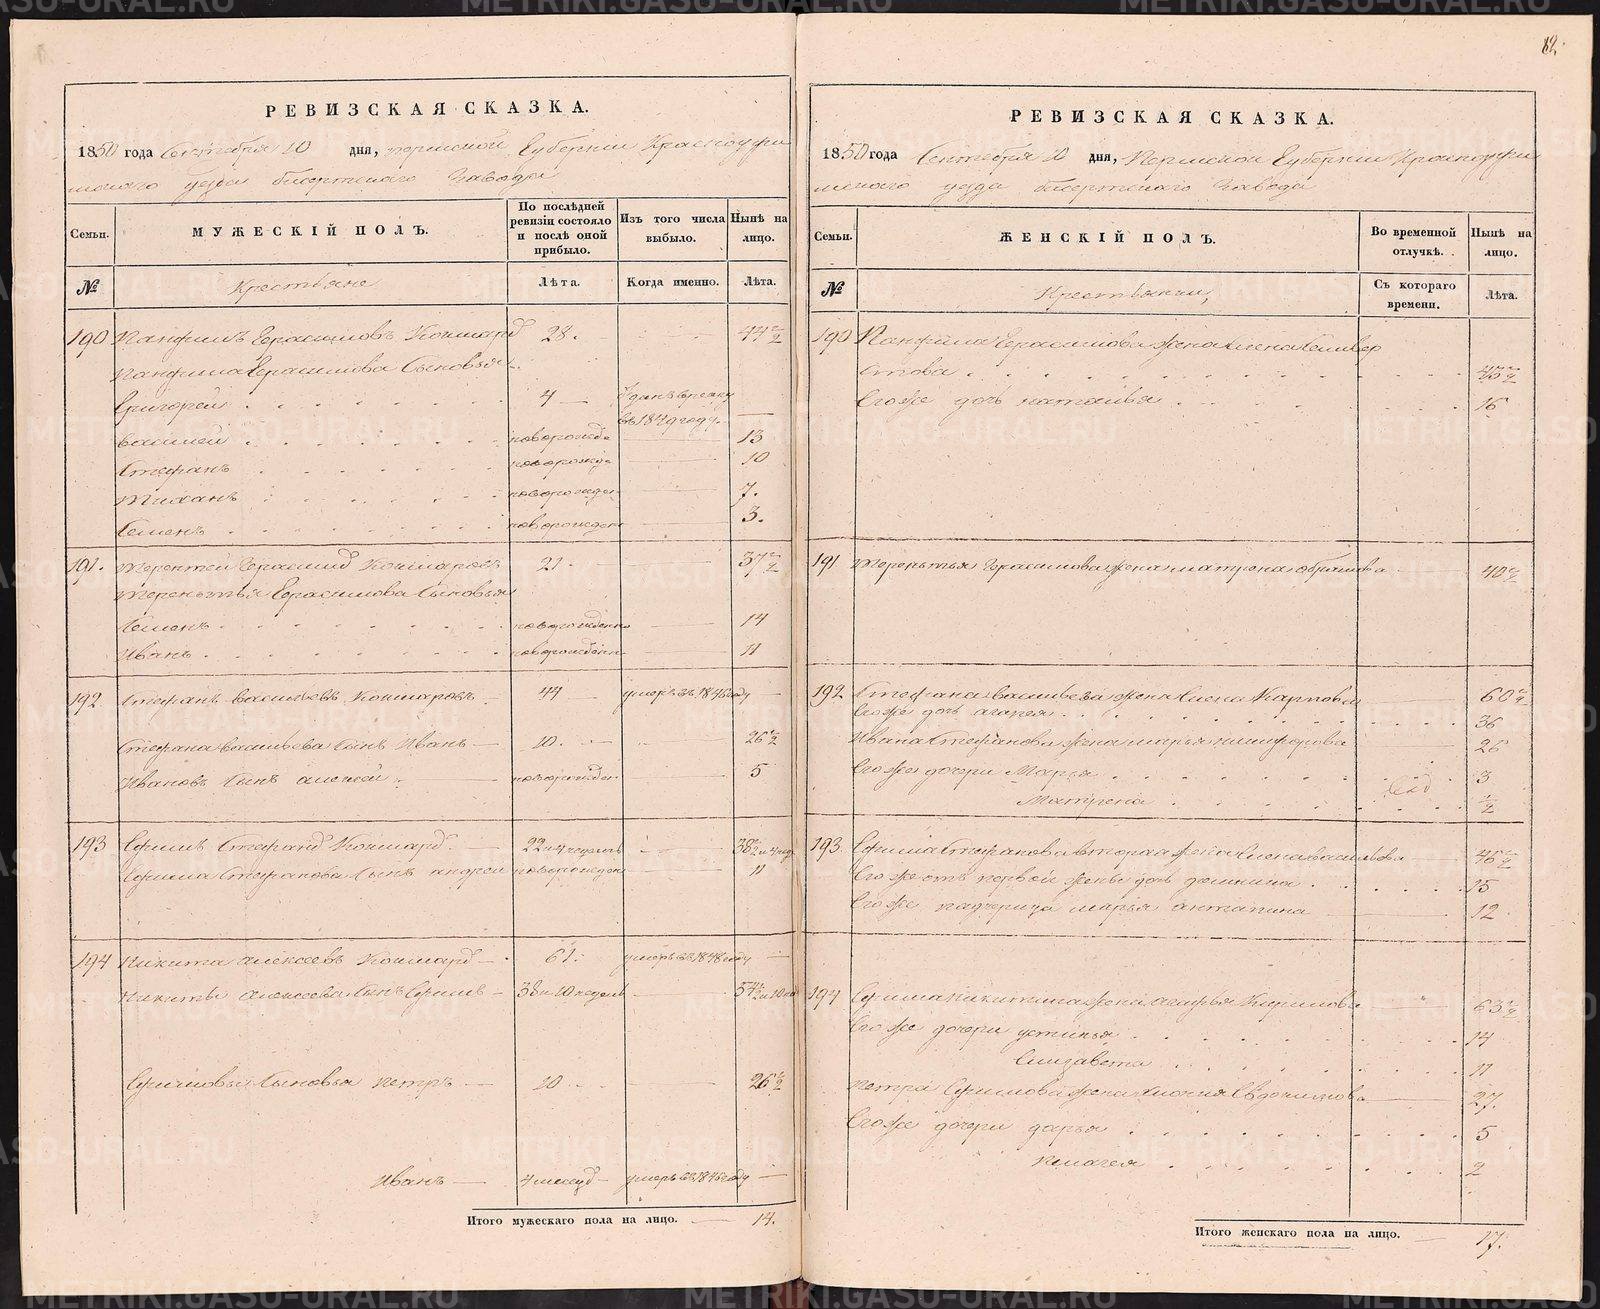 82.
РЕВИЗСКАЯ СКАЗКА.
1850 года Сентября 10 дня, Пермской Губернии Красноуфи
мского уезда бисертского Завода
Семьи.
МУЖЕСКІЙ ПОЛЪ.
По послѣдней ревизіи состояло и послѣ оной прибыло.
Изъ того числа выбыло.
Нынѣ на лицо.
№
Крестьяне
Лѣта.
Когда именно.
Лѣта.
190 Панфилъ Герасимовъ 28. 44 1/2
Панфила Герасимова Сыновья
Григорей 4
въ 1849 году
Василей новорожде 13
Стефанъ новорожде 10
Тиханъ новорожден 7.
Семенъ новорожден 3.
191. Терентей Герасимо Кошмаровъ 21 37 1/2
Терентья Герасимова Сыновья
Семенъ новорожденно 14
Иванъ новорожденн 11
192 Стефанъ Васильевъ Кошмаровъ 44 умеръ въ 1846 году
Стефана Васильева Сынъ Иванъ 10. 26 1/2
Ивановъ Сынъ Алексей новорожден 5
193 Ефимъ 22 и 4 недель 38 1/2 и 4 нед
Ефима Стефанова Сынъ Андрей новорожден 11
194 Никита Алексеевъ 61. умеръ въ 1848 году
Никиты Алексеева Сынъ Ефимъ 38 и 10 недель 54 1/2 и 10 не
Ефимовы Сыновья Петръ 10 26 1/2
Иванъ умеръ въ 1846 году
Итого мужескаго пола на лицо. 14.
РЕВИЗСКАЯ СКАЗКА.
1850 года Сентября 10 дня, Пермской Губернии Красноуфи
мского уезда бисертского Завода
Семьи.
ЖЕНСКІЙ ПОЛЪ.
Во временной отлучкѣ.
Нынѣ на лицо.
№
Крестьянки,
Съ котораго времени.
Лѣта.
190 Панфила Герасимова жена Селивер
стова 45 1/2
Его же дочь Наталья 16
191 Терентья Герасимова жена Матрена 40 1/2
192 Стефана Васильева жена Елена Карпова 60 1/2
Его же дочь 36
Ивана Стефанова жена Марья Никифорова 26
Его же дочери Марья 3
Матрена 1/2
193. Ефима Стефанова вторая жена Елена Васильева 46 1/2
Его же отъ первой жены дочь 15
Его же падчерица Марья Антипина 12
194 Ефима Никитина жена Агафья Кирилова 63 1/2
Его же дочери Устинья 14
Елизавета 11
Петра Ефимова жена Евдокимова 27.
Его же дочери Дарья 5
Пелагея 2
Итого женскаго пола на лицо. 17.
METRIKI.GASO-URAL.RU